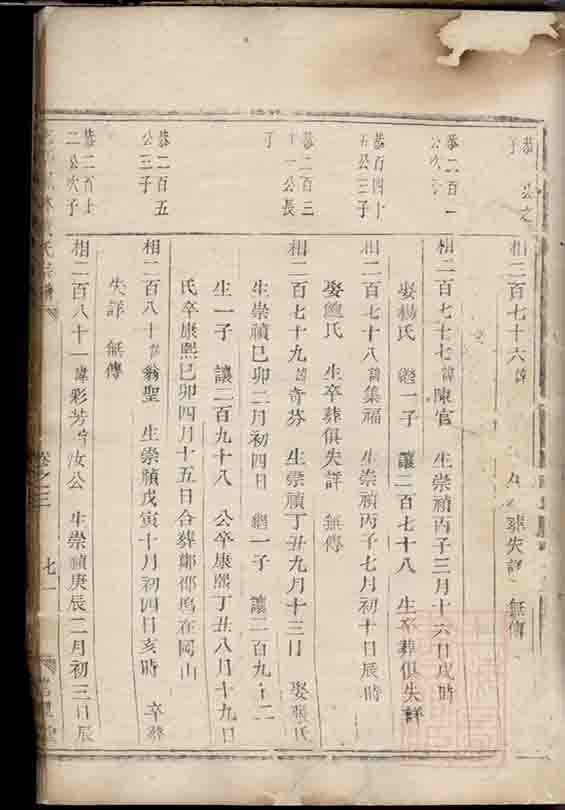 恭 公之
子
相二百七十六諱 葬失詳 無傳
恭二百一
公次子
相二百七十七諱陳官 生崇禎丙子三月十六日戌時
娶楊氏 繼一子 讓二百七十八 生卒葬俱失詳
恭百四十
五公三子
相二百七十八諱集福 生崇禎丙子七月初十日辰時
娶鮑氏 生卒葬俱失詳 無傳
恭二百三
十一公長
子
相二百七十九諱奇芬 生崇禎丁丑九月十三日 娶張氏
生崇禎己卯二月初四日 繼一子 讓二百九十二
生一子 讓二百九十八 公卒康熙丁丑八月十九日
氏卒康熙己卯四月十五日合葬鄭邵塢在岡山
恭二百五
公三子
相二百八十諱翁聖 生崇禎戊寅十月初四日亥時 卒葬
失詳 無傳
恭二百七
二公次子
相二百八十一諱彩芳字汝公 生崇禎庚辰二月初三日辰
氏宗譜 卷之三 七一